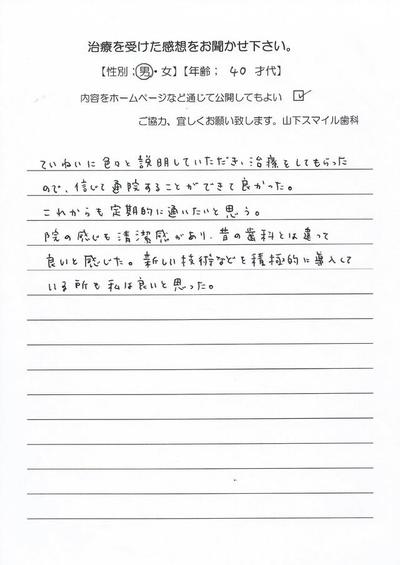 治療を受けた感想をお聞かせ下さい。
【性別:男・女】【年齢; 40 才代】
内容をホームページなど通じて公開してもよい ☑
ご協力、宜しくお願い致します。山下スマイル歯科
ていねいに色々と説明していただき、治療をしてもらった
ので、信じて通院することができて良かった。
これからも定期的に通いたいと思う。
院の感じも清潔感があり、昔の歯科とは違って
良いと感じた。新しい技術などを積極的に導入して
いる所も私は良いと思った。